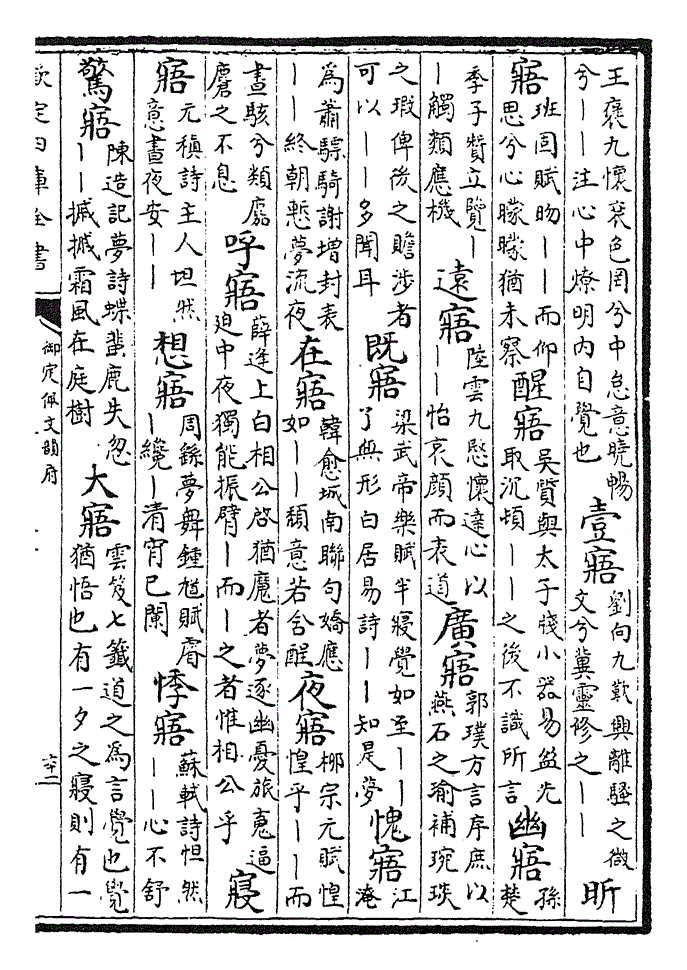 王褒九懷衮色罔兮中怠意曉暢
兮——注心中燎明内自覺也
壹寤
劉向九歎興離騷之微
文兮冀靈修之——
昕
寤
班固賦昒——而仰
思兮心矇矇猶未察
醒寤
吳質與太子牋小器易盈先
取沉頓——之後不識所言
幽寤
孫
楚
季子贊立覽—
—觸類應機
遠寤
陸雲九愍懷達心以
——怡哀顔而表道
廣寤
郭璞方言序庶以
燕石之瑜補琬琰
之瑕俾後之瞻涉者
可以——多聞耳
既寤
梁武帝樂賦半寢覺如至——
了無形白居易詩——知是夢
愧寤
江
淹
為蕭驃騎謝增封表
——終朝慙夢流夜
在寤
韓愈城南聯句嬌應
如——頽意若含酲
夜寤
柳宗元賦惶
惶乎——而
晝駭兮類麏
麚之不息
呼寤
薛逢上白相公啓猶魘者夢逐幽憂旅寃逼
迫中夜獨能振臂—而—之者惟相公乎
寢
寤
元稹詩主人坦然
意晝夜安——
想寤
周繇夢舞鍾馗賦睿
—纔—清宵已闌
悸寤
蘇軾詩怛然
——心不舒
驚寤
陳造記夢詩蝶蜚鹿失忽
——摵摵霜風在庭樹
大寤
雲笈七籤道之為言覺也覺
猶悟也有一夕之寢則有一
欽定四庫全書
御定佩文韻府
六十二